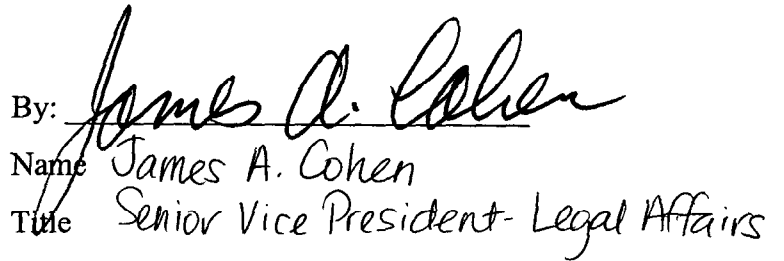 By: James A. Cohen
Name James A. Cohen
Title Senior Vice President- Legal Affairs